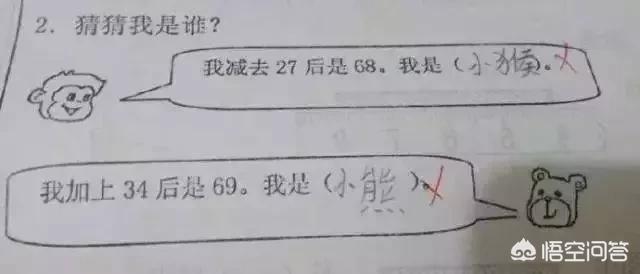 2. 猜猜我是谁?
我减去 27 后是 68。我是(小猴)。
我加上 34 后是 69。我是(小熊)。
悟空问答